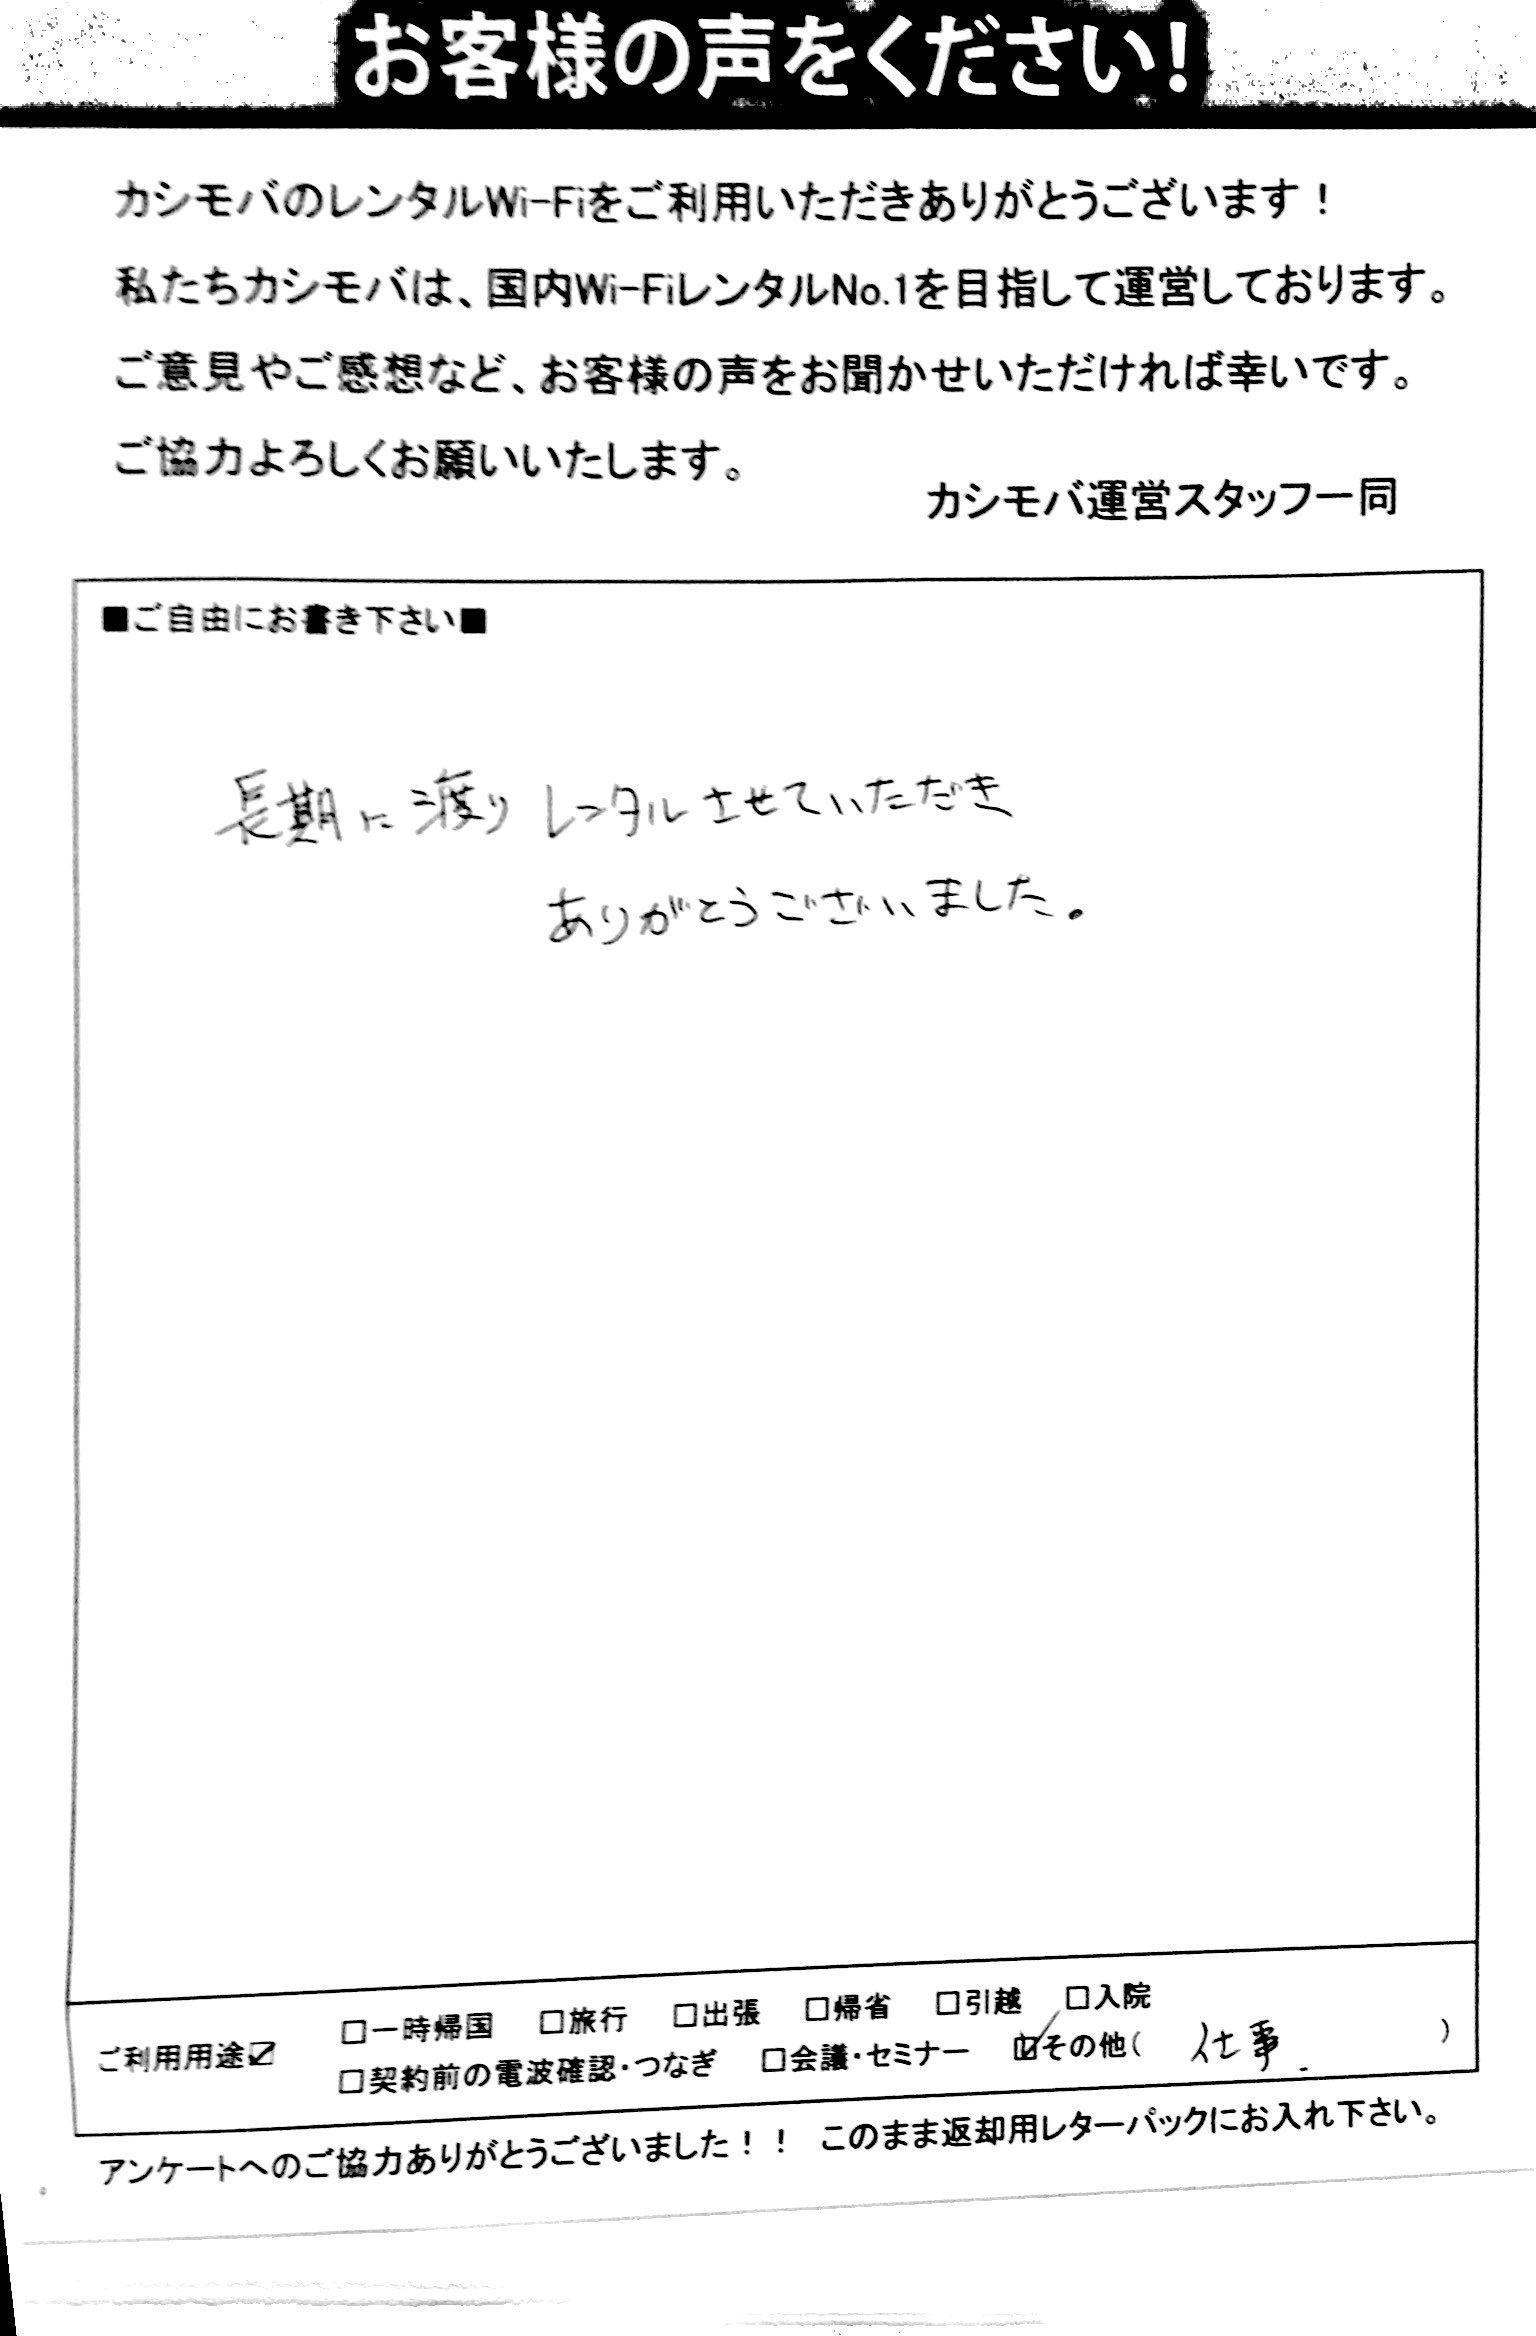 お客様の声をください!
カシモバのレンタルWi-Fiをご利用いただきありがとうございます！
私たちカシモバは、国内Wi-FiレンタルNo.1を目指して運営しております。
ご意見やご感想など、お客様の声をお聞かせいただければ幸いです。
ご協力よろしくお願いいたします。
カシモバ運営スタッフ一同
■ご自由にお書き下さい■
長期に渡りレンタルさせていただき
ありがとうございました。
ご利用用途☑
□一時帰国 □旅行 □出張 □帰省 □引越 □入院
□契約前の電波確認・つなぎ □会議・セミナー ☑その他（ 仕事. ）
アンケートへのご協力ありがとうございました！！ このまま返却用レターパックにお入れ下さい。